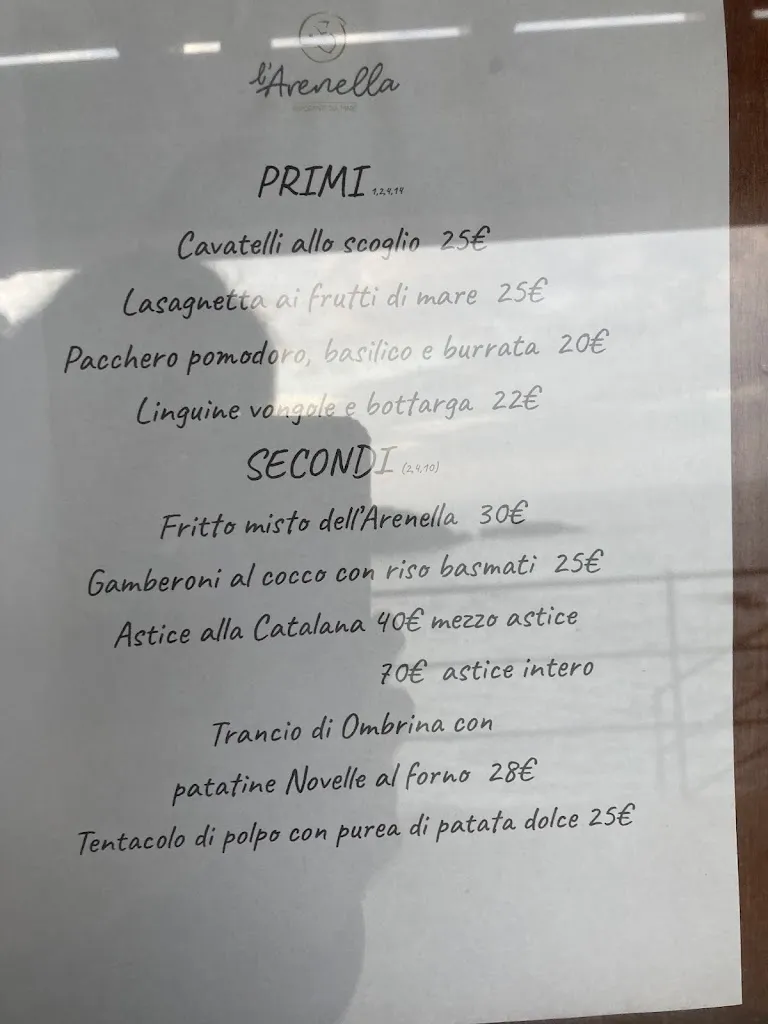 l'Arenella
PRIMI 1,2,4,14
Cavatelli allo scoglio 25€
Lasagnetta ai frutti di mare 25€
Pacchero pomodoro, basilico e burrata 20€
Linguine vongole e bottarga 22€
SECONDI (2,4,10)
Fritto misto dell'Arenella 30€
Gamberoni al cocco con riso basmati 25€
Astice alla Catalana 40€ mezzo astice
70€ astice intero
Trancio di Ombrina con
patatine Novelle al forno 28€
Tentacolo di polpo con purea di patata dolce 25€